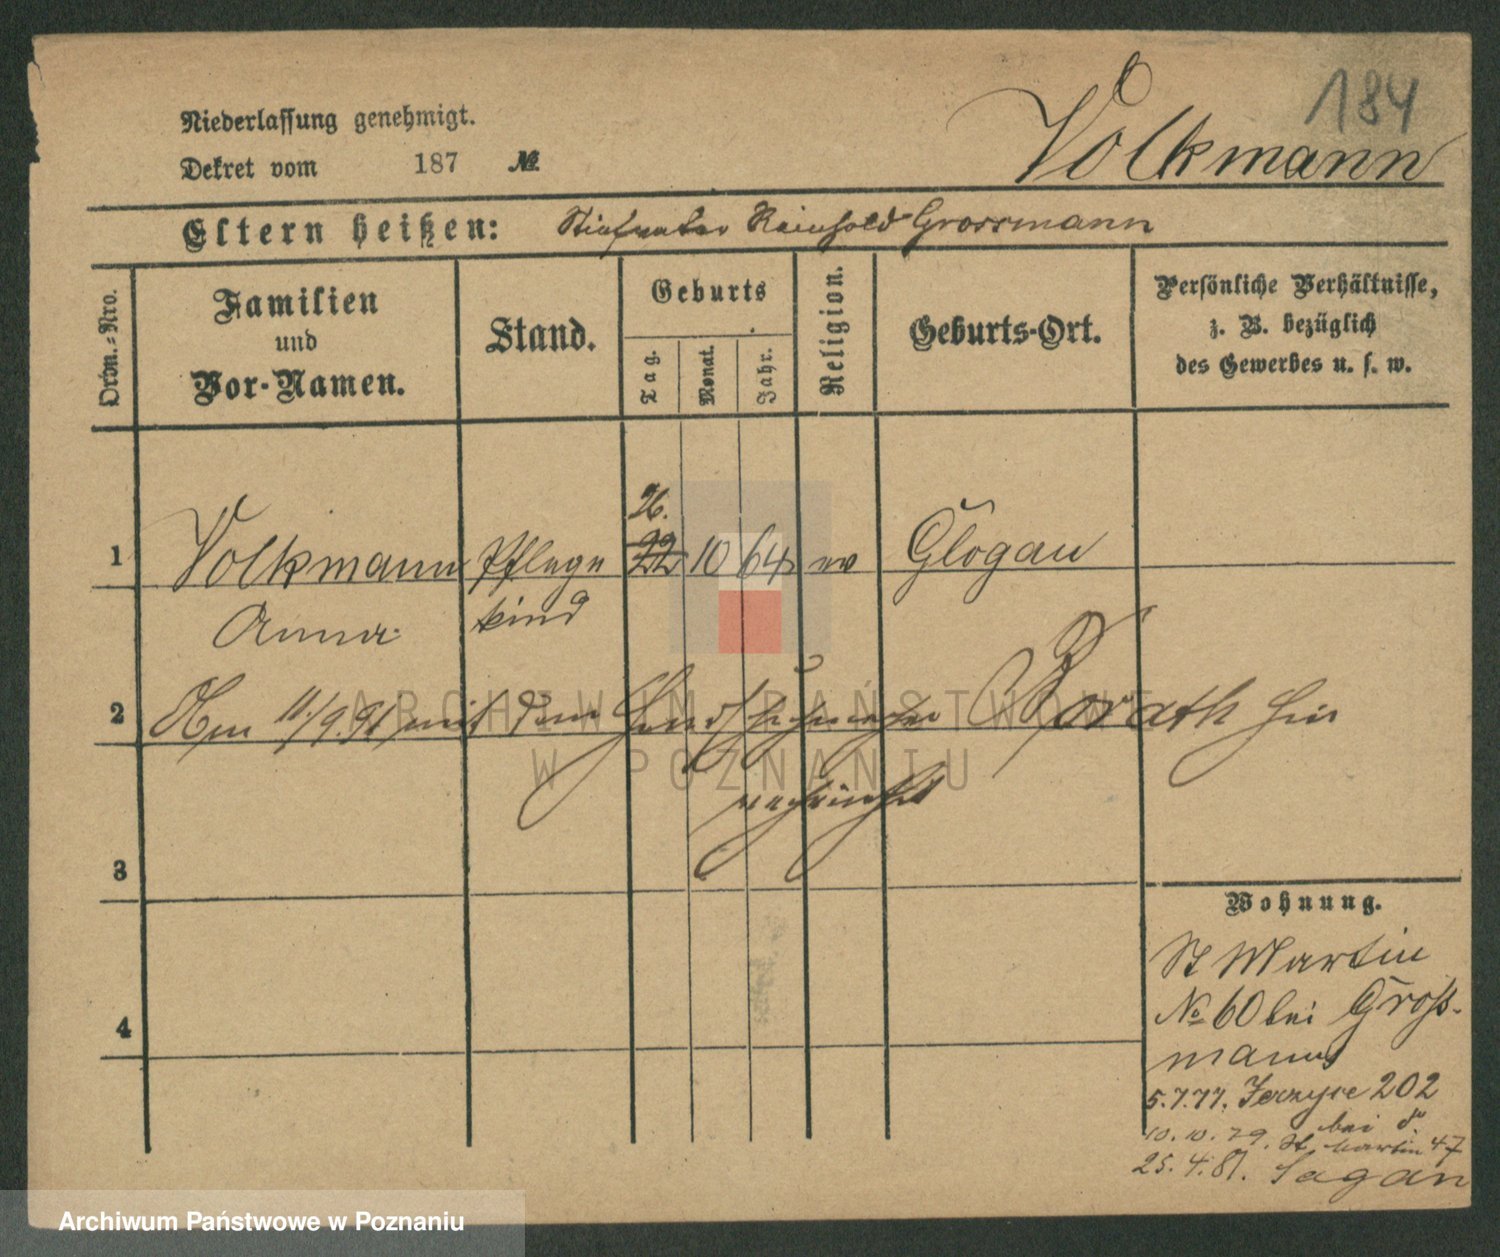 184
Volkmann
Niederlassung genehmigt.
Dekret vom 187 №
Eltern heißen: Stiefvater Reinhold Grossmann
Ordn.-Nro.
Familien
und
Vor-Namen.
Stand.
Geburts
Tag.
Monat.
Jahr.
Religion.
Geburts-Ort.
Persönliche Verhältnisse,
z. B. bezüglich
des Gewerbes u. s. w.
26.
1 Volkmann Pflege 22 10 64 ev Glogau
Anna kind
2 Am 11/9.91 mit dem Handschuhmacher Borath hier
verheirathet
3
4
Wohnung.
St Martin
№ 60 bei Gross-
mann
5.7.77. Jerzyce 202
bei do
10.10.79. St. Martin 47
25.4.81. Sagan
ARCHIWUM PAŃSTWOWE
W POZNANIU
Archiwum Państwowe w Poznaniu